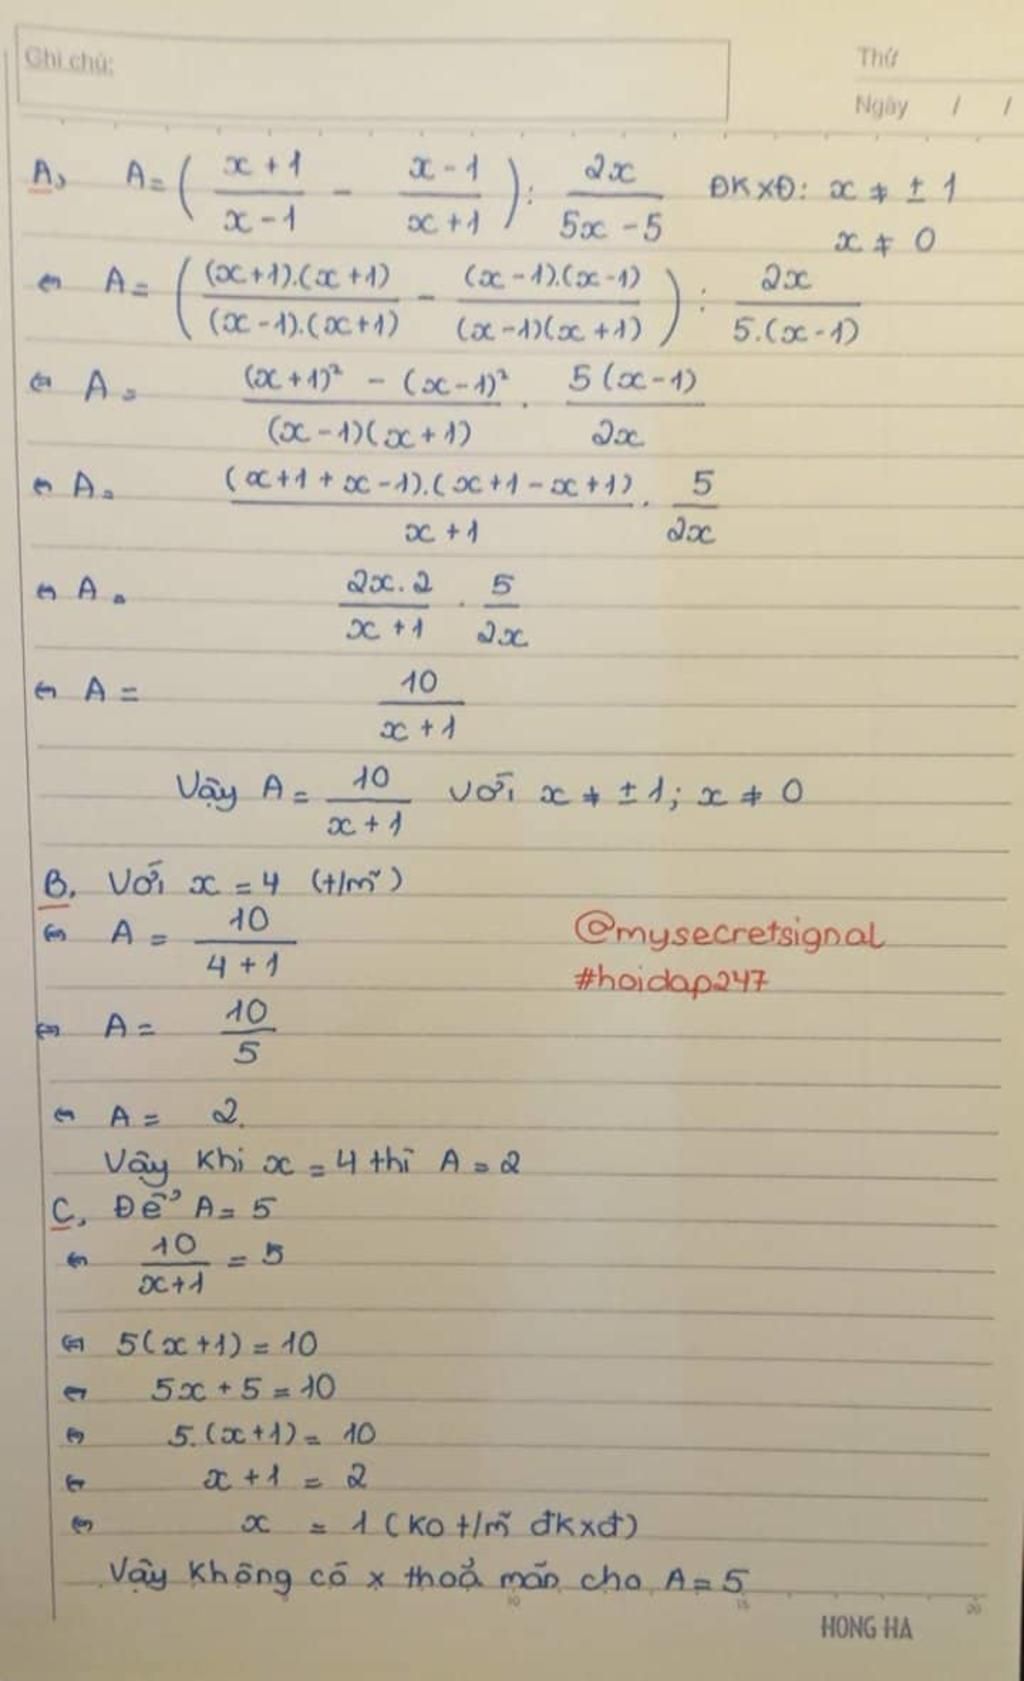 Ghi chú:
Thứ
Ngày / /
A, A = ( (x+1)/(x-1) - (x-1)/(x+1) ) : 2x/(5x-5) ĐKXĐ: x ≠ ± 1
x ≠ 0
⇔ A = ( (x+1).(x+1)/(x-1).(x+1) - (x-1).(x-1)/(x-1)(x+1) ) : 2x/5.(x-1)
⇔ A = ((x+1)² - (x-1)²)/((x-1)(x+1)) . 5(x-1)/2x
⇔ A = (x+1+x-1).(x+1-x+1)/(x+1) . 5/2x
⇔ A = 2x.2/(x+1) . 5/2x
⇔ A = 10/(x+1)
Vậy A = 10/(x+1) với x ≠ ± 1; x ≠ 0
B, Với x = 4 (t/m~)
⇔ A = 10/(4+1)
@mysecretsignal
#hoidap247
⇔ A = 10/5
⇔ A = 2.
Vậy khi x = 4 thì A = 2
C, Để A = 5
⇔ 10/(x+1) = 5
⇔ 5(x+1) = 10
⇔ 5x + 5 = 10
⇔ 5.(x+1) = 10
⇔ x + 1 = 2
⇔ x = 1 (ko t/m~ đkxđ)
Vậy không có x thoả mãn cho A = 5
10 15 20
HONG HA